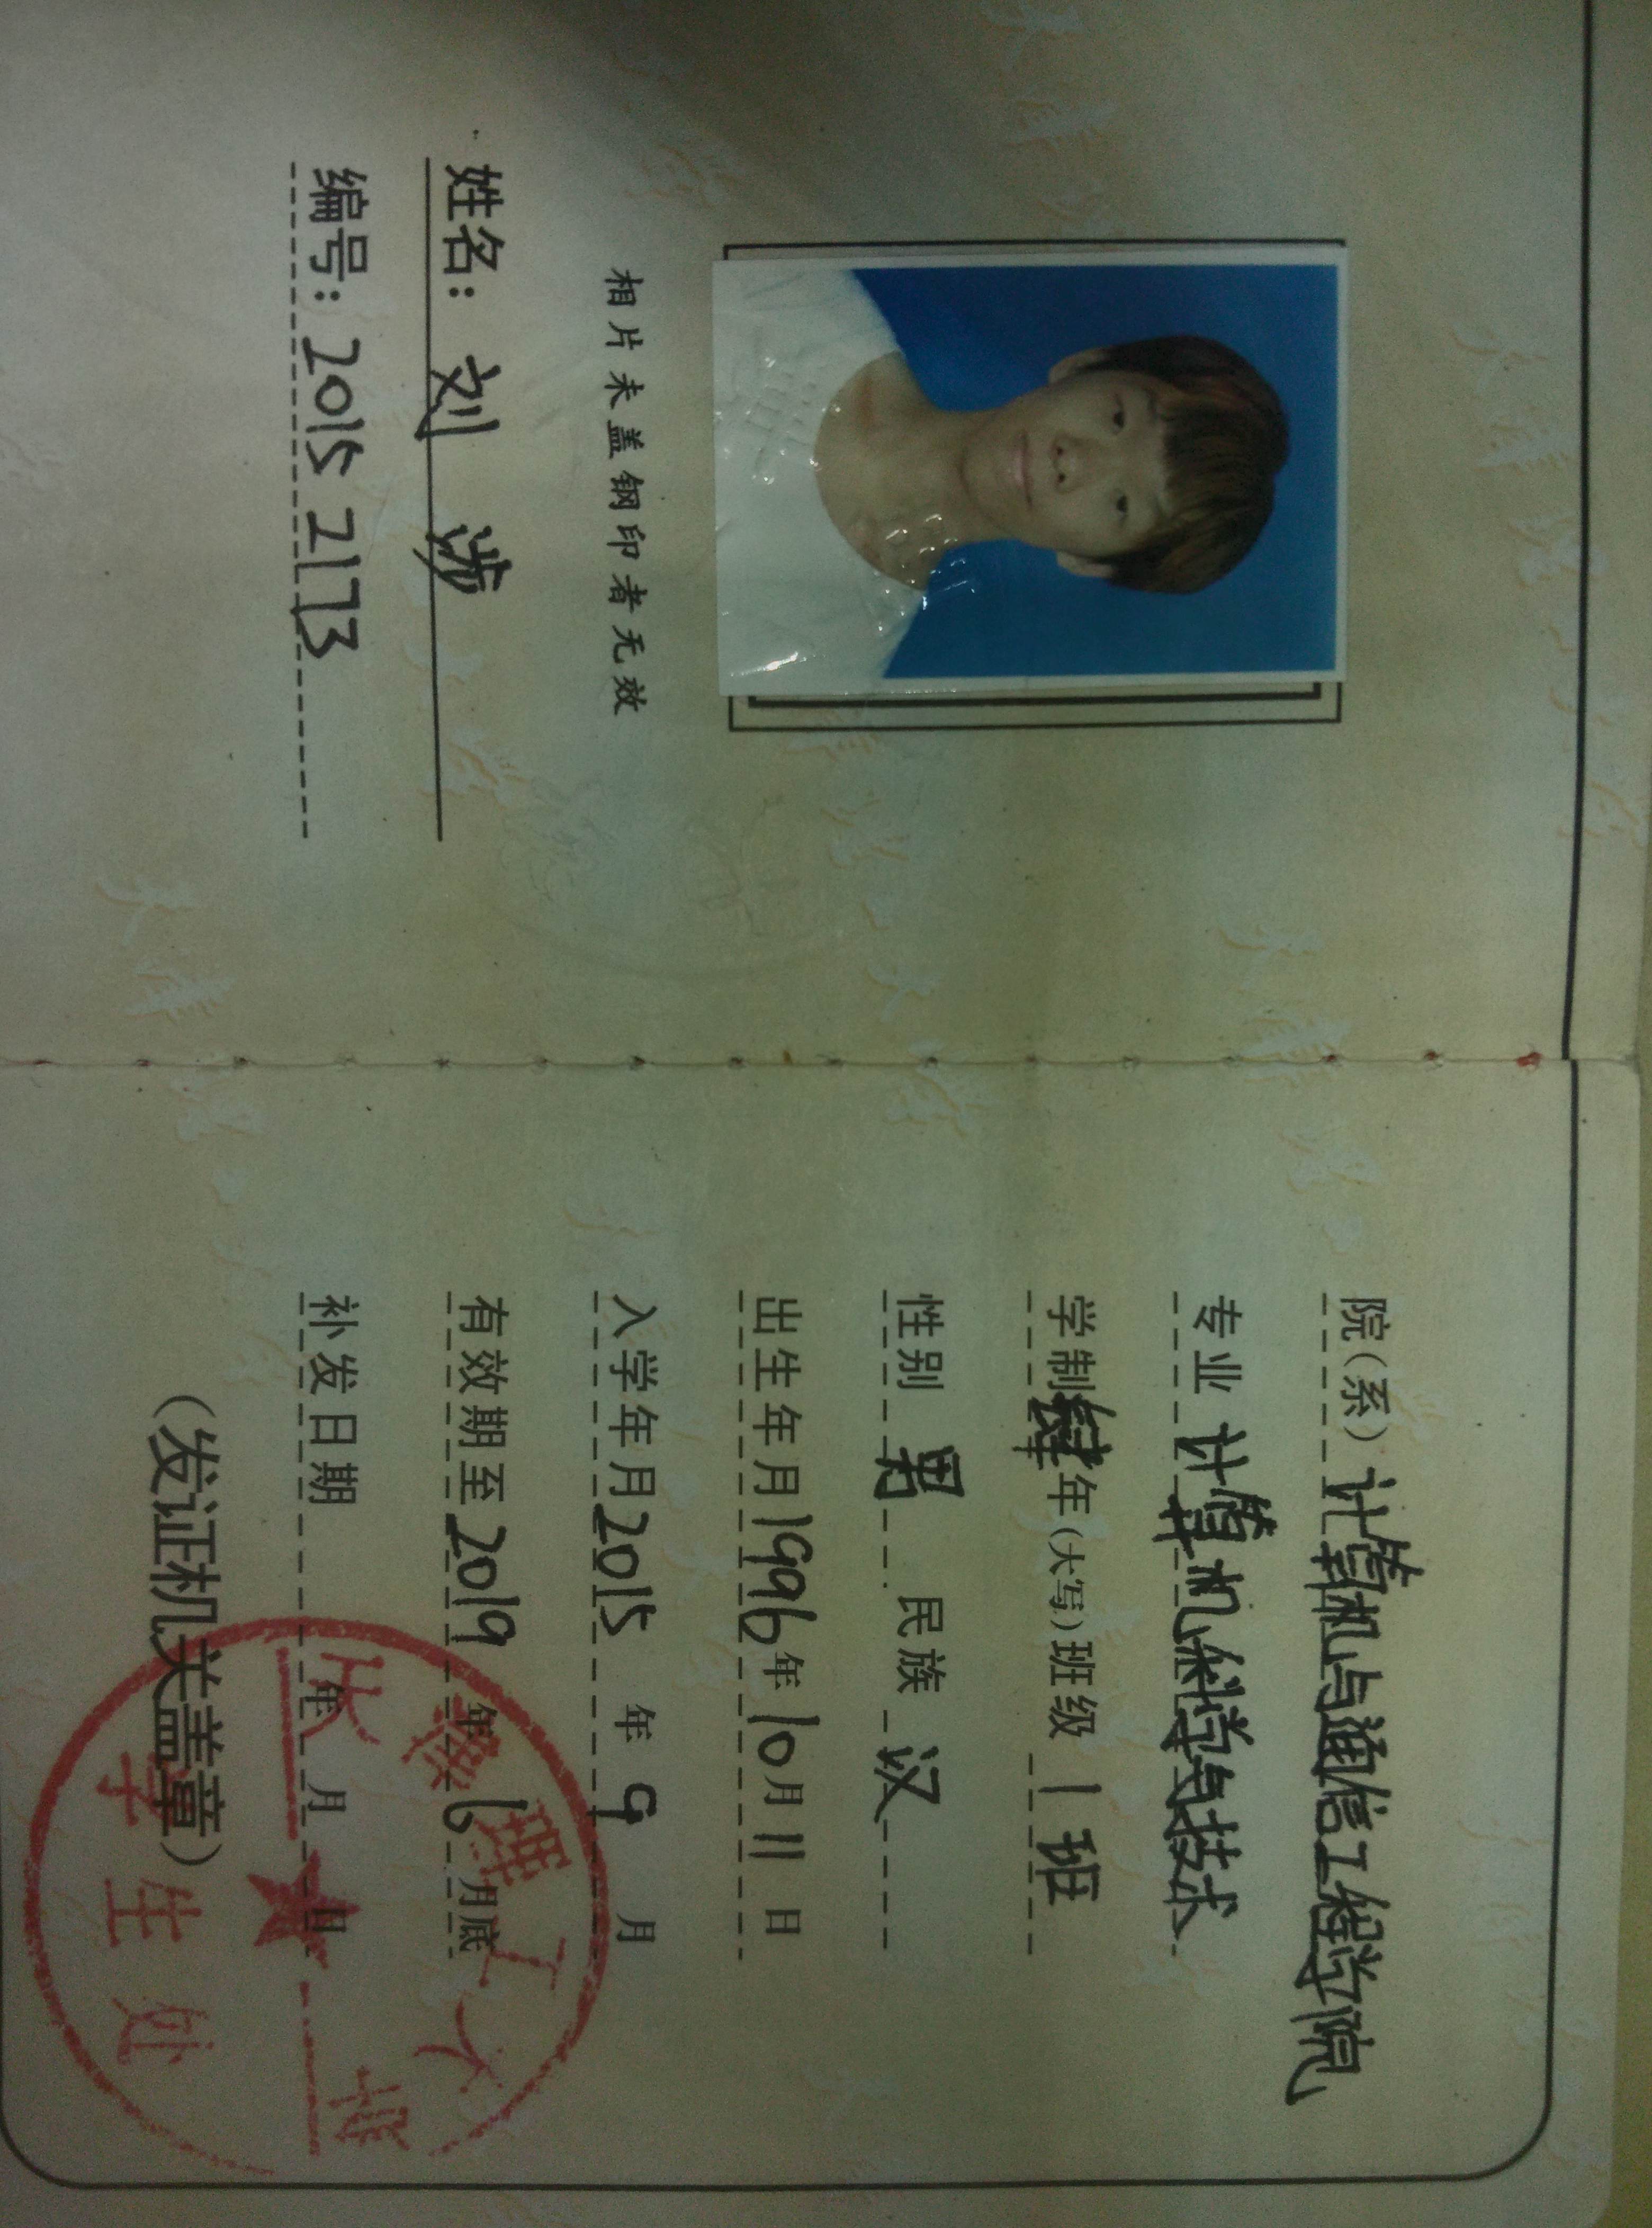 相片未盖钢印者无效
姓名：刘涉
编号：20152173
院（系）计算机与通信工程学院
专业 计算机科学与技术
学制肆年（大写）班级 1班
性别 男 民族 汉
出生年月1996年10月11日
入学年月2015年9月
有效期至2019年6月底
补发日期 年 月 日
（发证机关盖章）
长沙理工大学
学生处